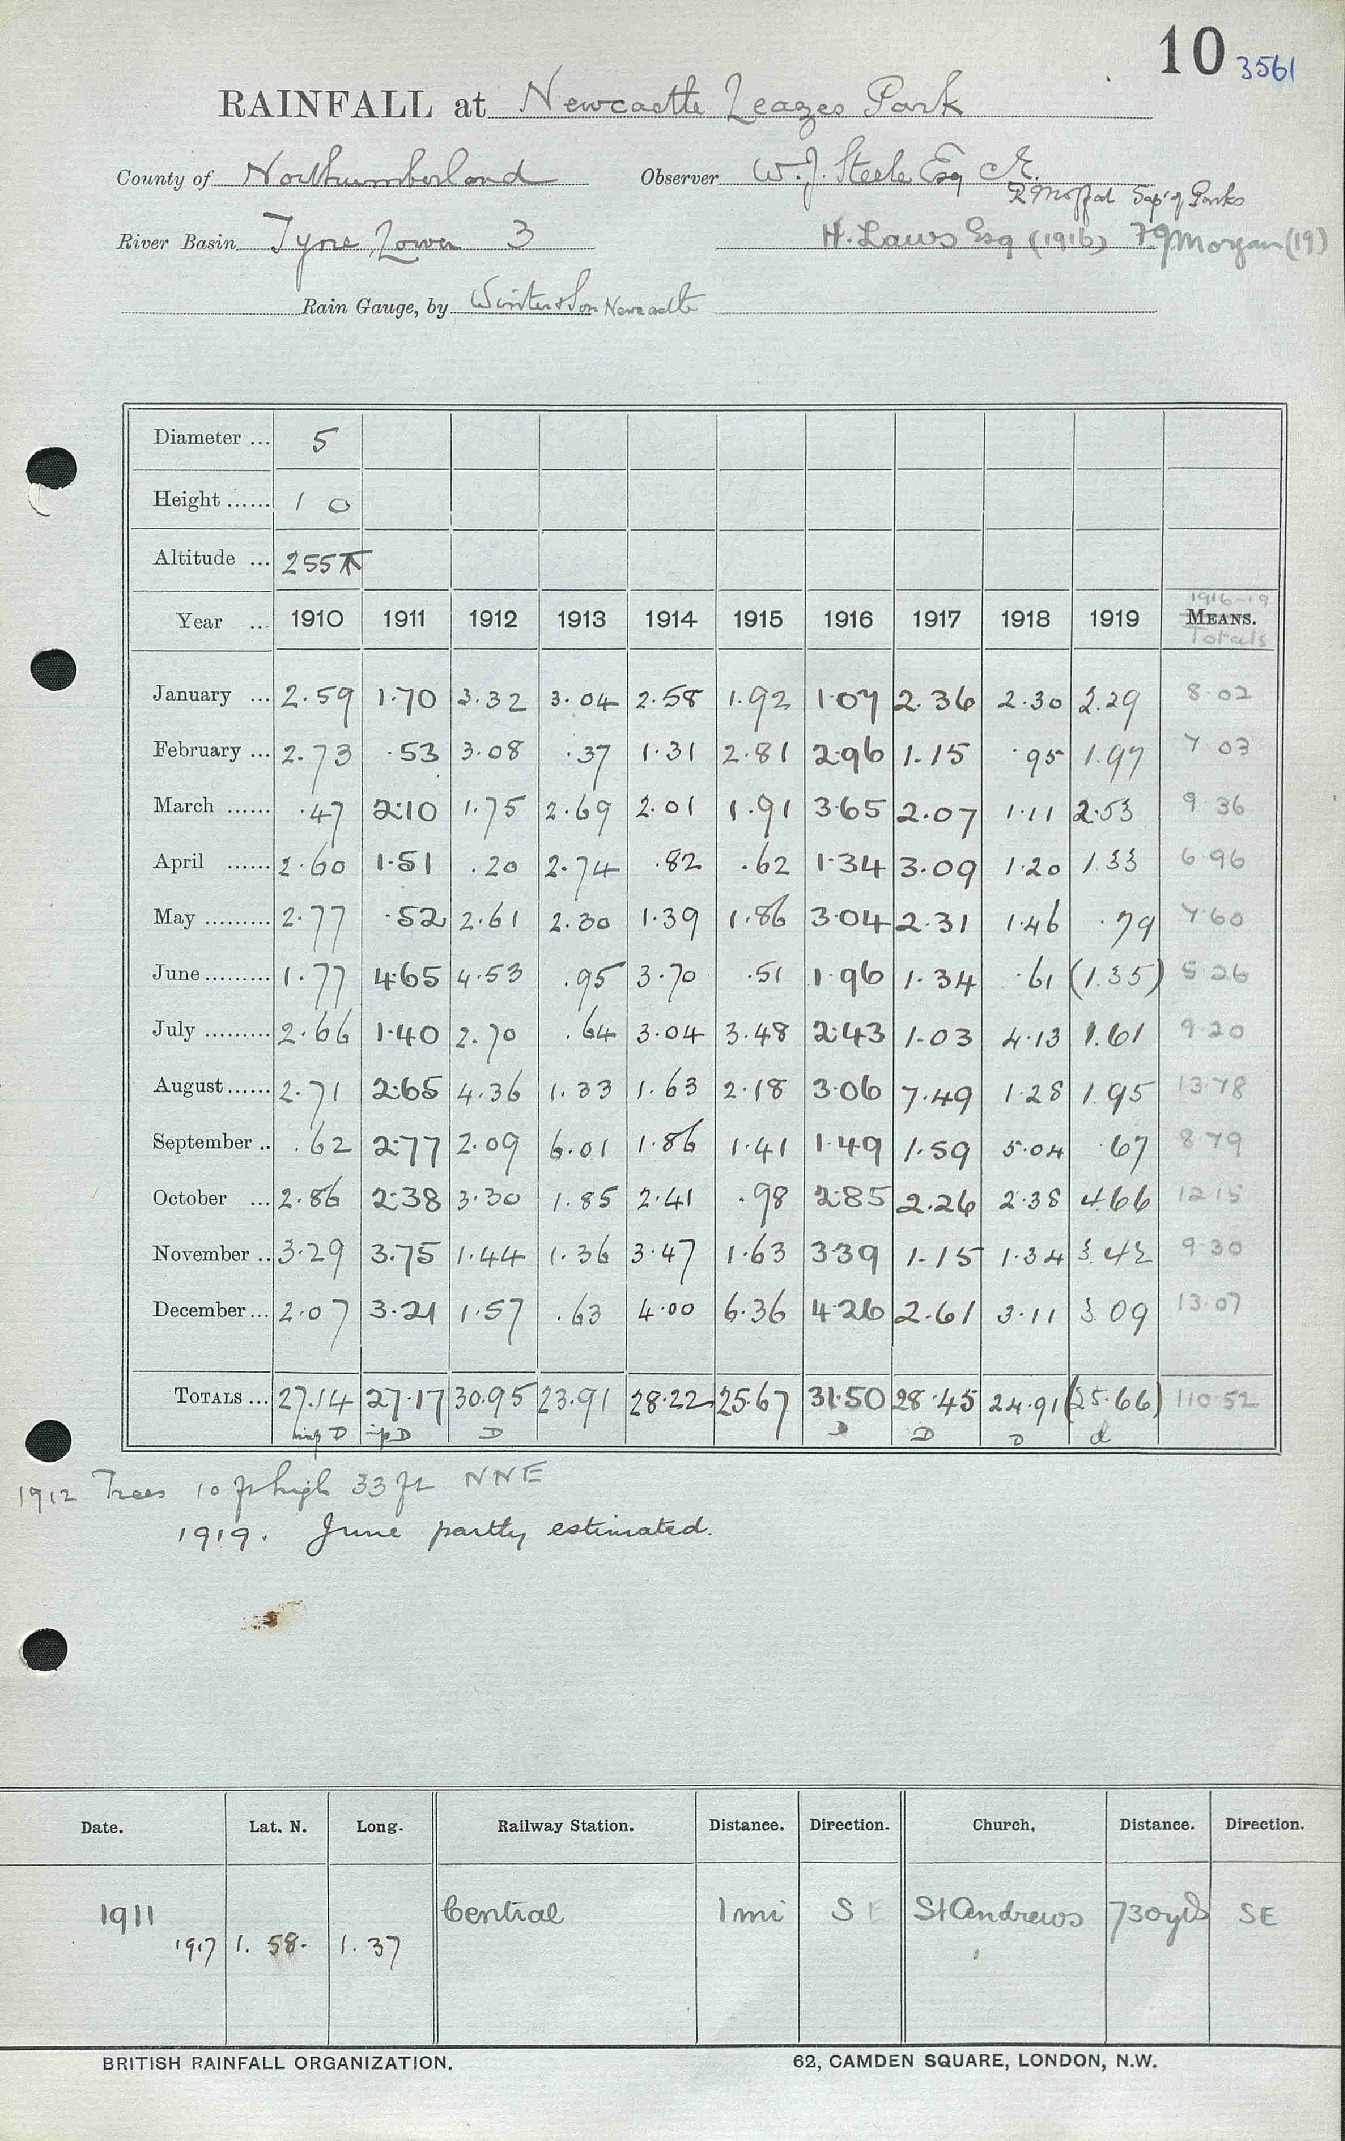 10 3561
RAINFALL at Newcastle Leazes Park
County of Northumberland Observer W. J. Steele Esq C.E.
R Moffat Sup' of Parks
River Basin Tyne Lower 3 H. Laws Esq (1916) F J Morgan (19)
Rain Gauge, by Winter & Son Newcastle
Diameter ... 5
Height ...... 1 0
Altitude ... 255 ft
1916-19
Year ... 1910 1911 1912 1913 1914 1915 1916 1917 1918 1919 MEANS.
Totals
January ... 2.59 1.70 3.32 3.04 2.58 1.92 1.07 2.36 2.30 2.29 8.02
February ... 2.73 .53 3.08 .37 1.31 2.81 2.96 1.15 .95 1.97 7.03
March ...... .47 2.10 1.75 2.69 2.01 1.91 3.65 2.07 1.11 2.53 9.36
April ...... 2.60 1.51 .20 2.74 .82 .62 1.34 3.09 1.20 1.33 6.96
May ......... 2.77 .52 2.61 2.30 1.39 1.86 3.04 2.31 1.46 .79 7.60
June ......... 1.77 4.65 4.53 .95 3.70 .51 1.96 1.34 .61 (1.35) 5.26
July ......... 2.66 1.40 2.70 .64 3.04 3.48 2.43 1.03 4.13 1.61 9.20
August ...... 2.71 2.65 4.36 1.33 1.63 2.18 3.06 7.49 1.28 1.95 13.78
September .. .62 2.77 2.09 6.01 1.86 1.41 1.49 1.59 5.04 .67 8.79
October ... 2.86 2.38 3.30 1.85 2.41 .98 2.85 2.26 2.38 4.66 12.15
November .. 3.29 3.75 1.44 1.36 3.47 1.63 3.39 1.15 1.34 3.42 9.30
December ... 2.07 3.21 1.57 .63 4.00 6.36 4.26 2.61 3.11 3.09 13.07
TOTALS ... 27.14 27.17 30.95 23.91 28.22 25.67 31.50 28.45 24.91 (25.66) 110.52
D D D D D D d
1912 Trees 10 ft high 33 ft NNE
1919. June partly estimated.
Date. Lat. N. Long. Railway Station. Distance. Direction. Church. Distance. Direction.
1911 Central 1 mi SE St Andrews 730 yds SE
1917 1. 58. 1. 37
BRITISH RAINFALL ORGANIZATION. 62, CAMDEN SQUARE, LONDON, N.W.